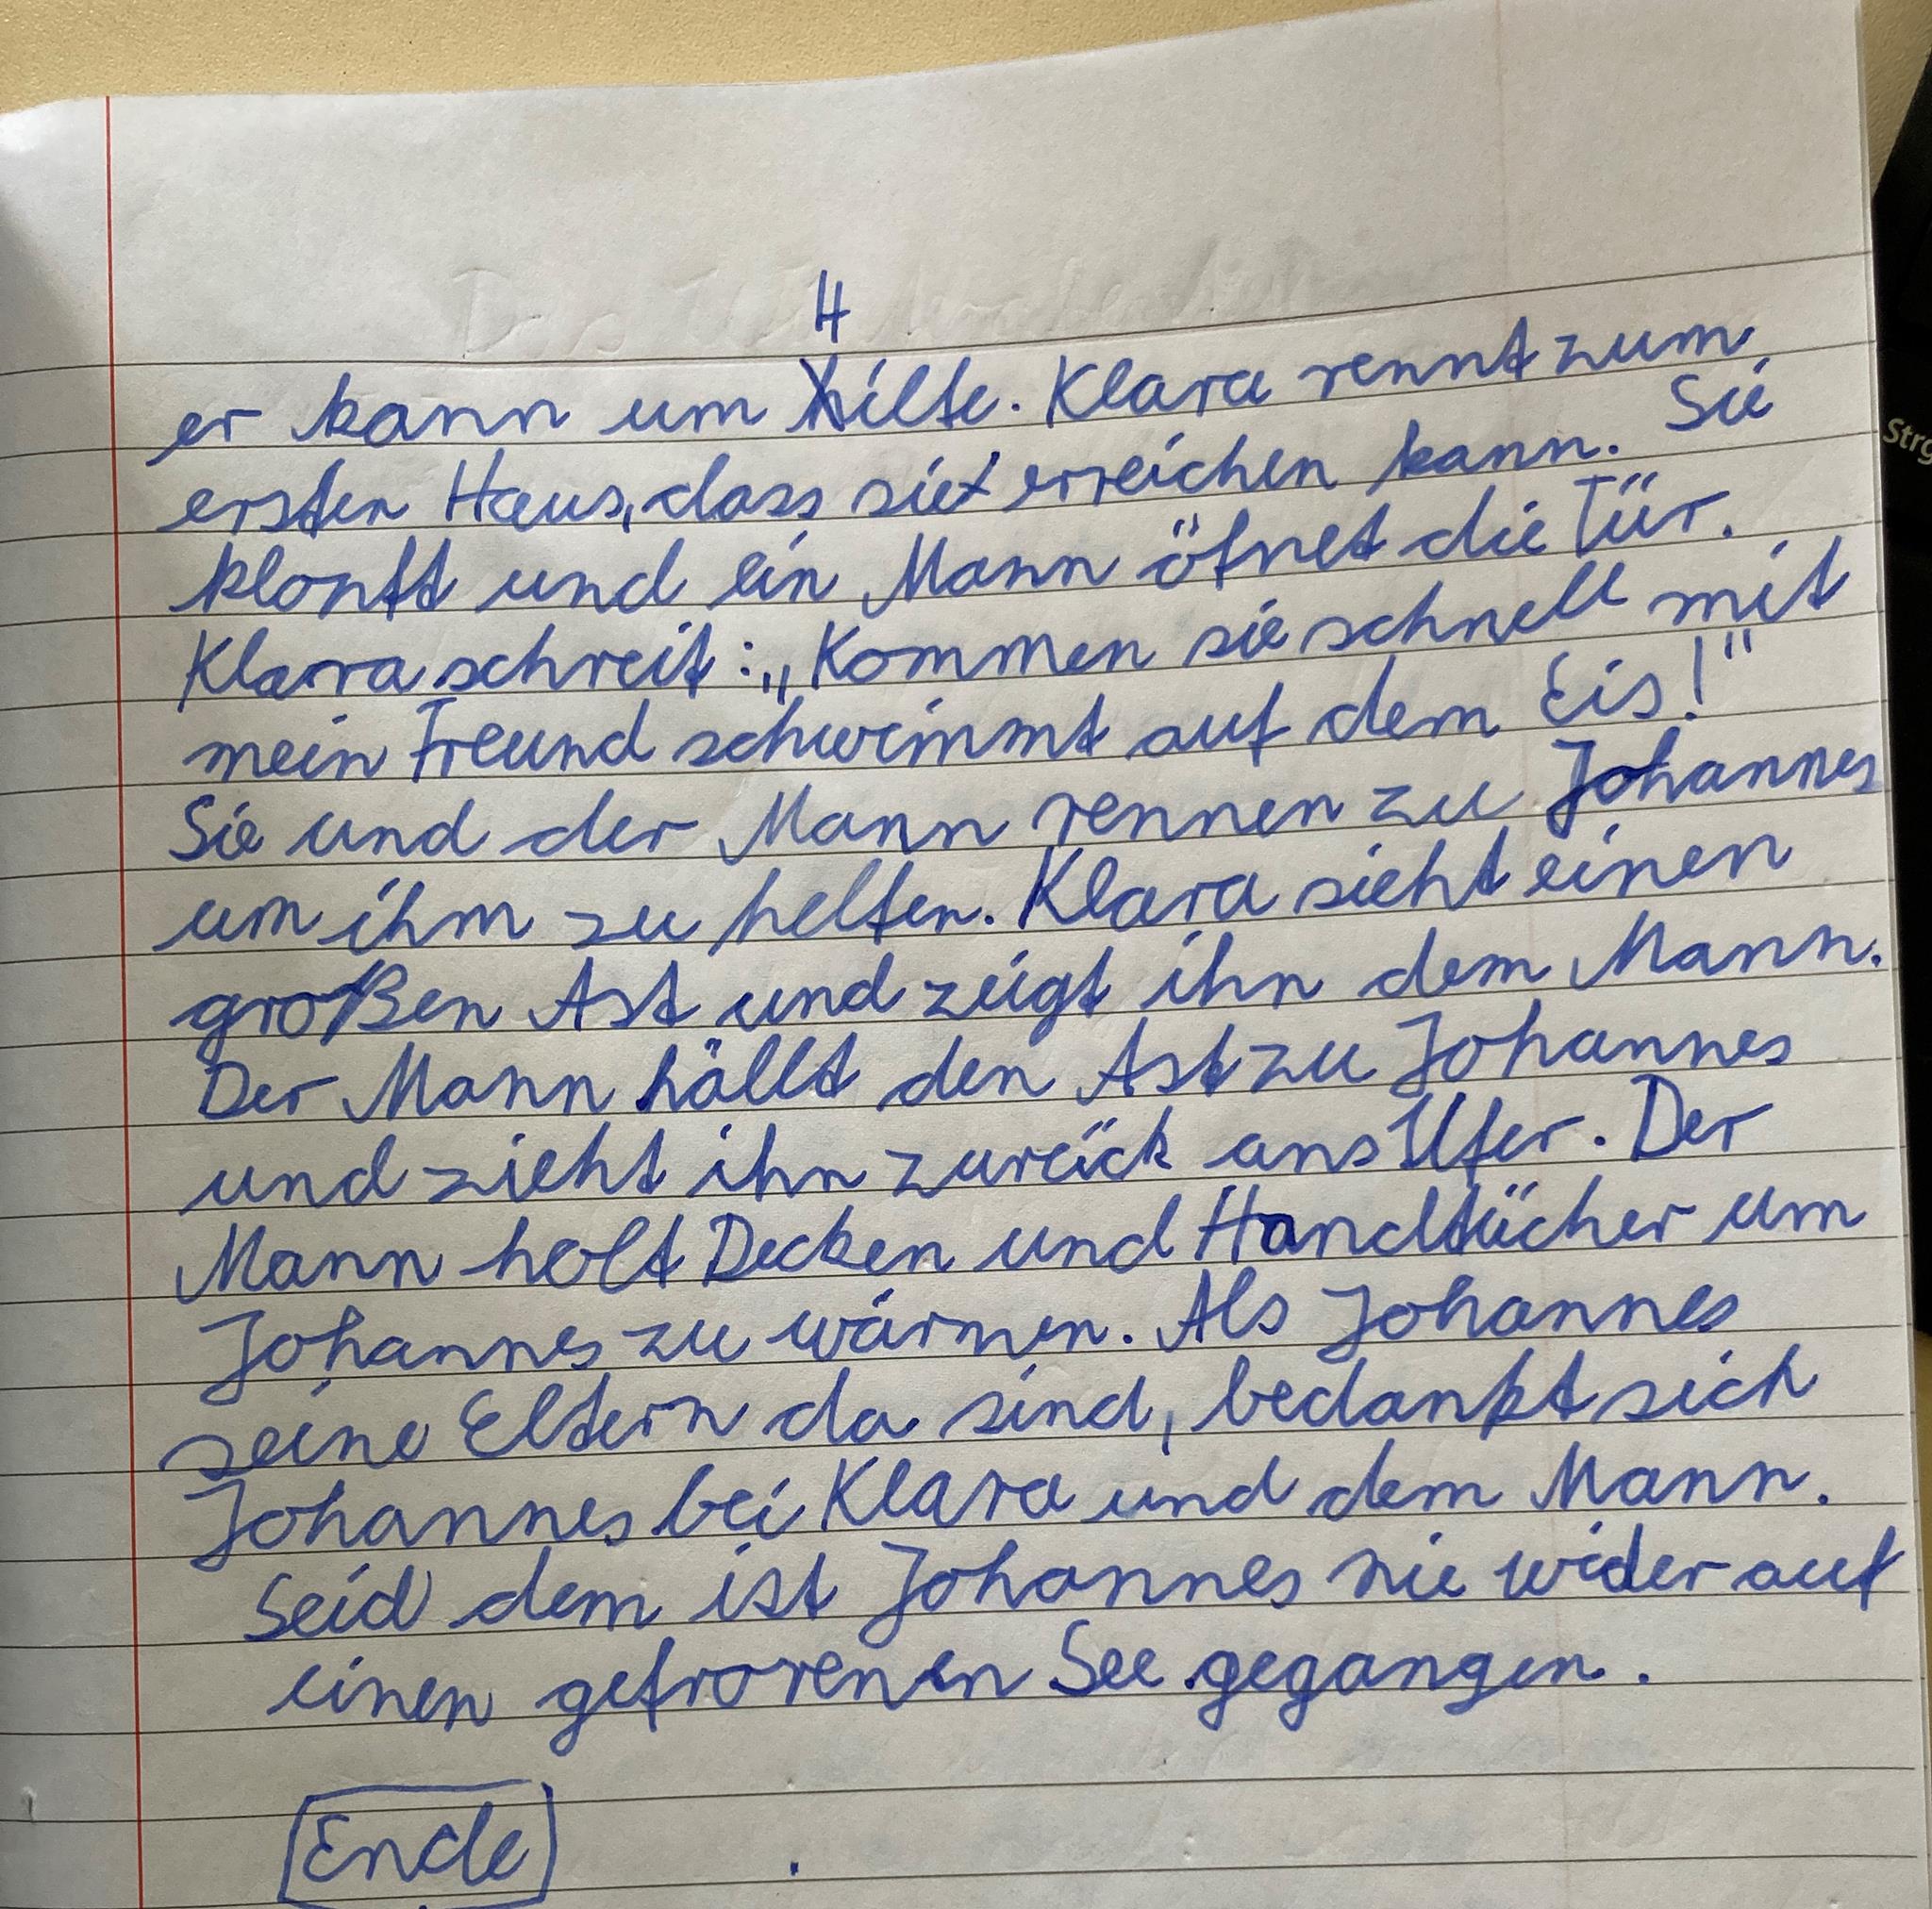 er kann um Hilfe. Klara rennt zum
ersten Haus, dass sie erreichen kann. Sie
klopft und ein Mann öfnet die Tür.
Klara schreit: „Kommen sie schnell mit
mein Freund schwimmt auf dem Eis!"
Sie und der Mann rennen zu Johannes
um ihm zu helfen. Klara sieht einen
großen Ast und zeigt ihn dem Mann.
Der Mann hällt den Ast zu Johannes
und zieht ihn zurück ans Ufer. Der
Mann holt Decken und Handtücher um
Johannes zu wärmen. Als Johannes
seine Eltern da sind, bedankt sich
Johannes bei Klara und dem Mann.
Seid dem ist Johannes nie wider auf
einen gefrorenen See gegangen.
Ende
Strg